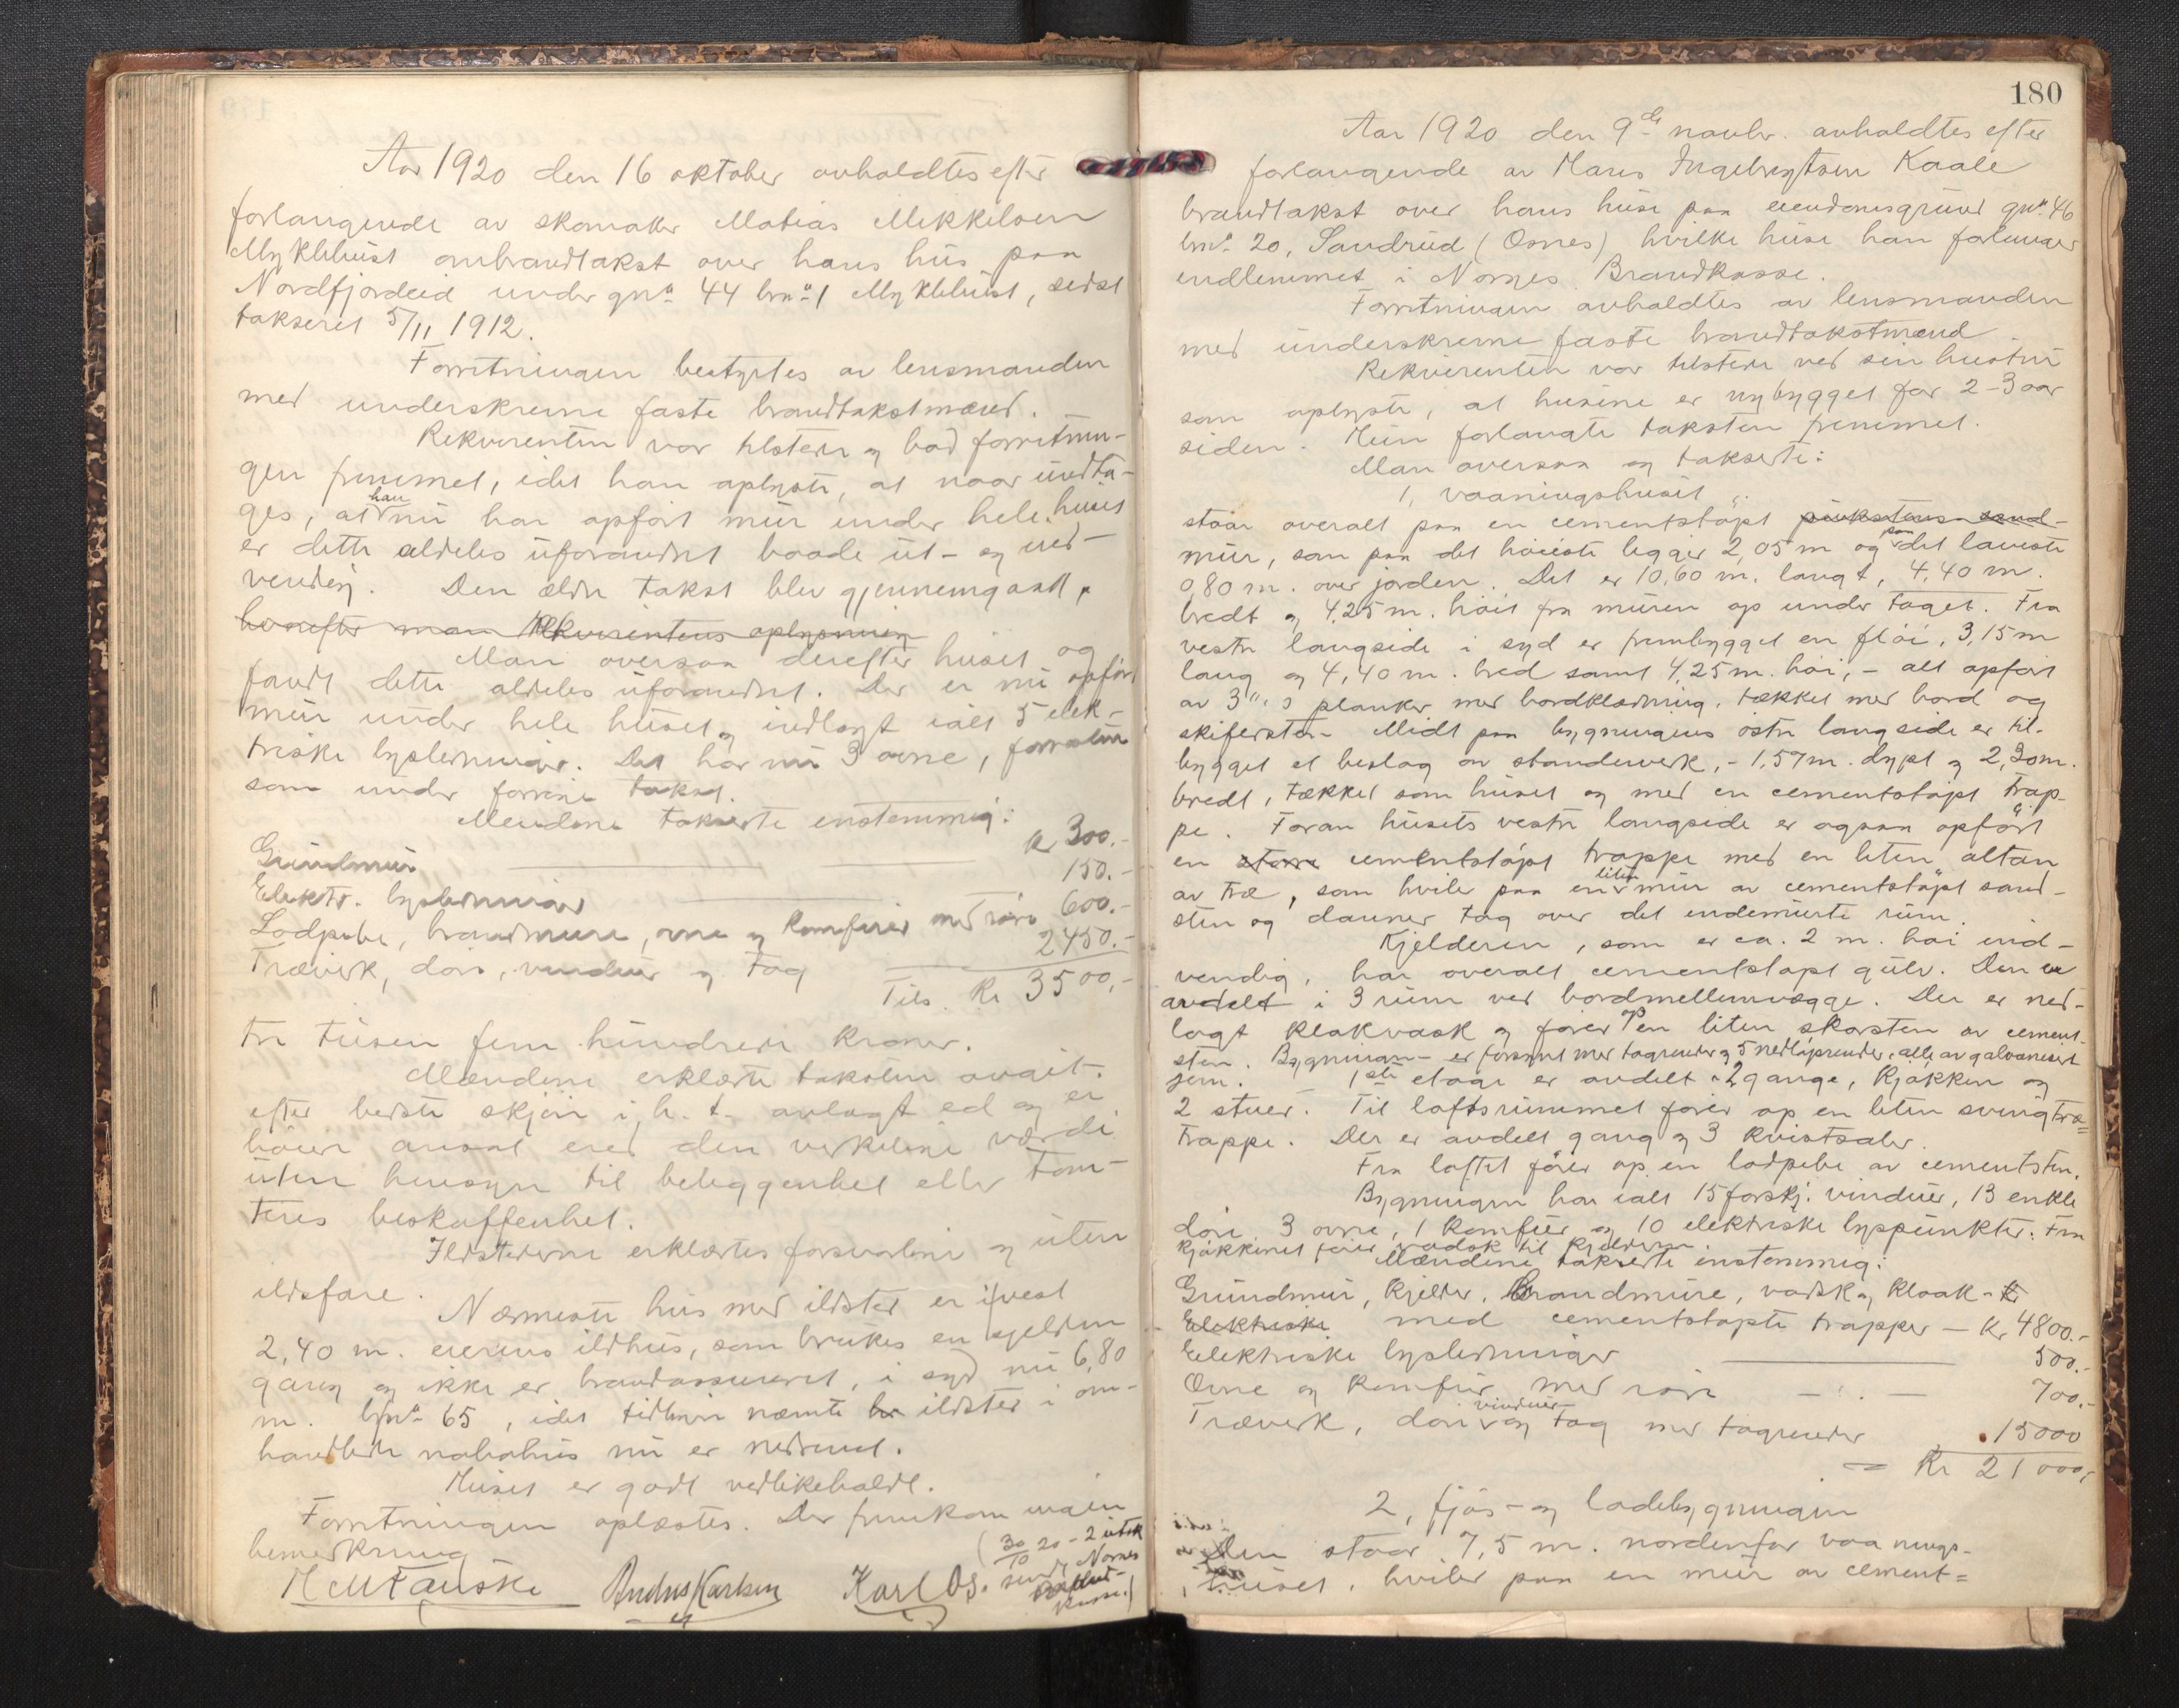 Aar 1920 den 16 oktober avholdtes efter
forlangende av skomaker Matias Mikkelsen
Myklebust ombrandtakst over hans hus paa
Nordfjordeid under gno. 44 brno. 1 Myklebust, sidst
takseret 5/11 1912.
Forretningen bestyrtes av lensmanden
med underskrevne faste brandtakstmænd.
Rekvirenten var tilstede og bad forretnin-
gen fremmet, idet han oplyste, at naar undta-
ges, at han nu har opført mur under hele huset
er dette aldeles uforandret baade ut- og ind-
vendig. Den ældre takst blev gjennemgaat,
hvorefter man Rekvirentens oplysning
Man oversaa derefter huset og
fandt dette aldeles uforandret. Der er nu opført
mur under hele huset og indlagt ialt 5 elek-
triske lysledninger. Det har nu 3 ovne, forøvrig
som under forrige takst.
Mændene takserte enstemmig:
Grundmur kr 300.-
Elektr. lysledninger 150.-
Lodpibe, brandmure, ovne og komfurer med rør 600.-
Træverk, døre, vinduer og tag 2450.-
Tils. Kr 3500,-
tre tusen fem hundrede kroner.
Mændene erklærte taksten avgit
efter bedste skjøn i h. t. avlagt ed og er
høiere ansat end den virkelige værdi
uten hensyn til beliggenhet eller tom-
tens beskaffenhet.
Ildstederne erklærtes forsvarlige og uten
ildsfare.
Nærmeste hus med ildsted er i vest
2,40 m. eierens ildhus, som brukes en sjelden
gang og ikke er brandassureret, i syd nu 6,80
m. bno. 65, idet tidligere nævnte ildsted i om-
handlede nabohus nu er nedrevet.
Huset er godt vedlikeholdt.
Forretningen oplæstes. Der fremkom ingen
bemerkning
(30/10 20 - 2 utsk
sendt Norges
Brand-
kasse.)
H M Fauske Andreas Karlsen Karl Os.
180
Aar 1920 den 9de novbr. avholdtes efter
forlangende av Hans Ingebrigtsen Kaale
brandtakst over hans huse paa eiendomsgrund gno. 46
brno. 20, Sandrud (Osnes) hvilke huse han forlanger
indlemmet i Norges Brandkasse.
Forretningen avholdtes av lensmanden
med underskrevne faste brandtakstmænd
Rekvirenten var tilstede ved sin hustru
som oplyste, at husene er nybygget for 2-3 aar
siden. Hun forlangte taksten fremmet.
Man oversaa og takserte:
1, vaaningshuset
staar overalt paa en cementstøpt sand-
mur, som paa det høieste ligger 2,05 m og paa det laveste
0,80 m. over jorden. Det er 10,60 m. langt, 4,40 m.
bredt og 4,25 m. høit fra muren op under taget. Fra
vestre langside i syd er frembygget en fløi, 3,15 m
lang og 4,40 m. bred samt 4,25 m. høi, - alt opført
av 3" planker med bordklædning, tækket med bord og
skifersten. Midt paa bygningens østre langside er til-
bygget et beslag av standerverk, - 1,57 m. dypt og 2,30 m.
bredt, tækket som huset og med en cementstøpt trap-
pe. Foran husets vestre langside er ogsaa opført
en større cementstøpt trappe med en liten altan
av træ, som hviler paa en liten mur av cementstøpt sand-
sten og danner tag over det indemurte rum.
Kjelderen, som er ca. 2 m. høi ind-
vendig, har overalt cementstøpt gulv. Den er
avdelt i 3 rum ved bordmellemvægge. Der er ned-
lagt kloakvask og fører op en liten skorsten av cement-
sten. Bygningen er forsynt med tagrender og 5 nedløpsrender, alle av galvanisert
jern. 1ste etage er avdelt i 2 gange, kjøkken og
2 stuer. Til loftsrummet fører op en liten sving træ-
trappe. Der er avdelt gang og 3 kvistsaler.
Fra loftet fører op en lodpibe av cementsten.
Bygningen har ialt 15 forskj. vinduer, 13 enkle
døre, 3 ovne, 1 komfur og 10 elektriske lyspunkter. Fra
kjøkkenet fører vadsk til kjelderen.
Mændene takserte enstemmig:
Grundmur, kjelder, Brandmure, vadsk og kloak-
Elektriske med cementstøpte trapper - Kr 4800.-
Elektriske lysledninger 500.-
Ovne og komfur med rør - " - 700.-
Træverk, døre vinduer og tag med tagrender 15000
= Kr 21000,-
2, fjøs- og ladebygningen
Den staar 7,5 m. nordenfor vaanings-
huset, hviler paa en mur av cement=